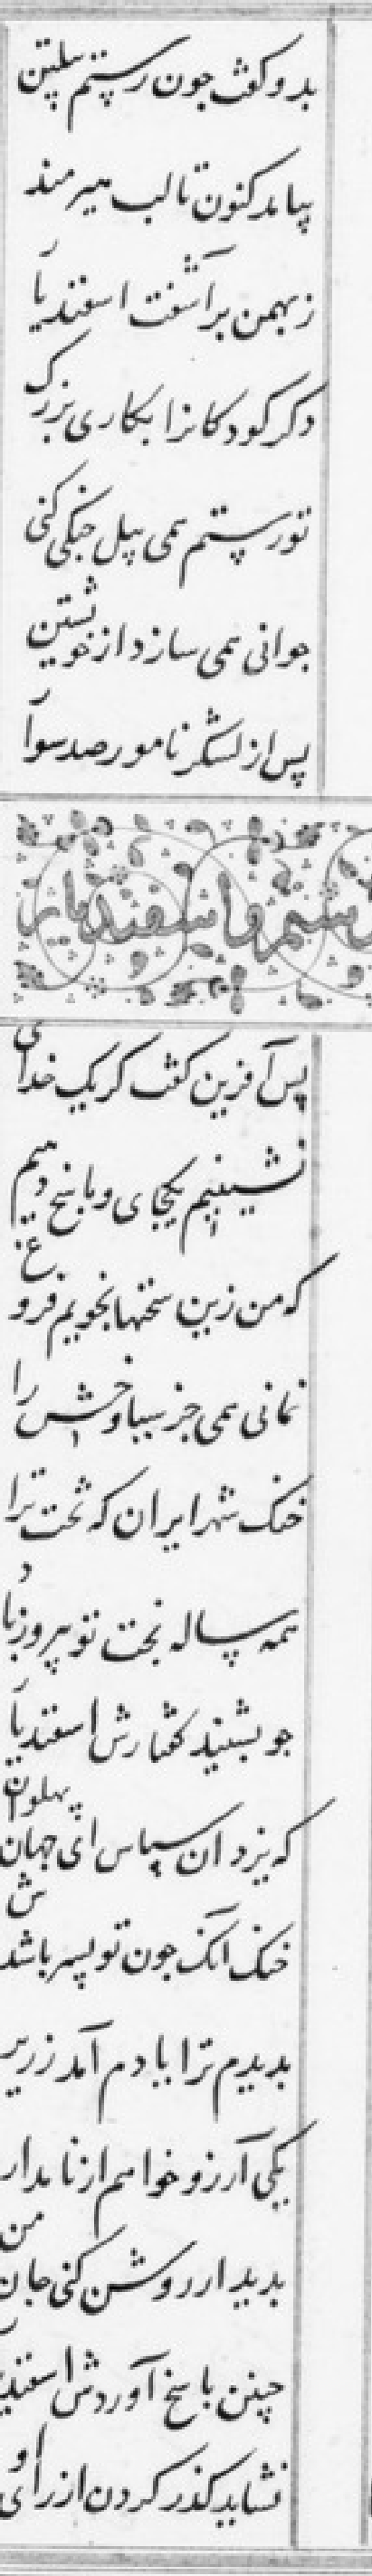 بدو کفت جون رستم پیلتن
بیامد کنون تا لب هیرمند
ز بهمن برآشفت اسفندیار
دکر کودکانرا بکاری بزرک
تو رستم همی پیل جنکی کنی
جوانی همی سازد از خویشتن
پس از لشکر نامور صد سوار
رستم و اسفندیار
پس آفرین کفت کز یک خدای
نشینیم یکجای و پاسخ دهیم
که من زین سخنها بخویم فروغ
نمانی همی جز سیاوخش را
خنک شهر ایران که تخت ترا
همه ساله بخت تو پیروز باد
جو بشنید کفتارش اسفندیار
که یزدان سپاس ای جهان پهلوان
خنک آنک جون تو پسر باشدش
بدیدم ترا یادم آمد زریر
یکی آرزو خواهم از نامدار
بدیدار روشن کنی جان من
جنین پاسخ آوردش اسفندیار
نشاید کذر کردن از رای او